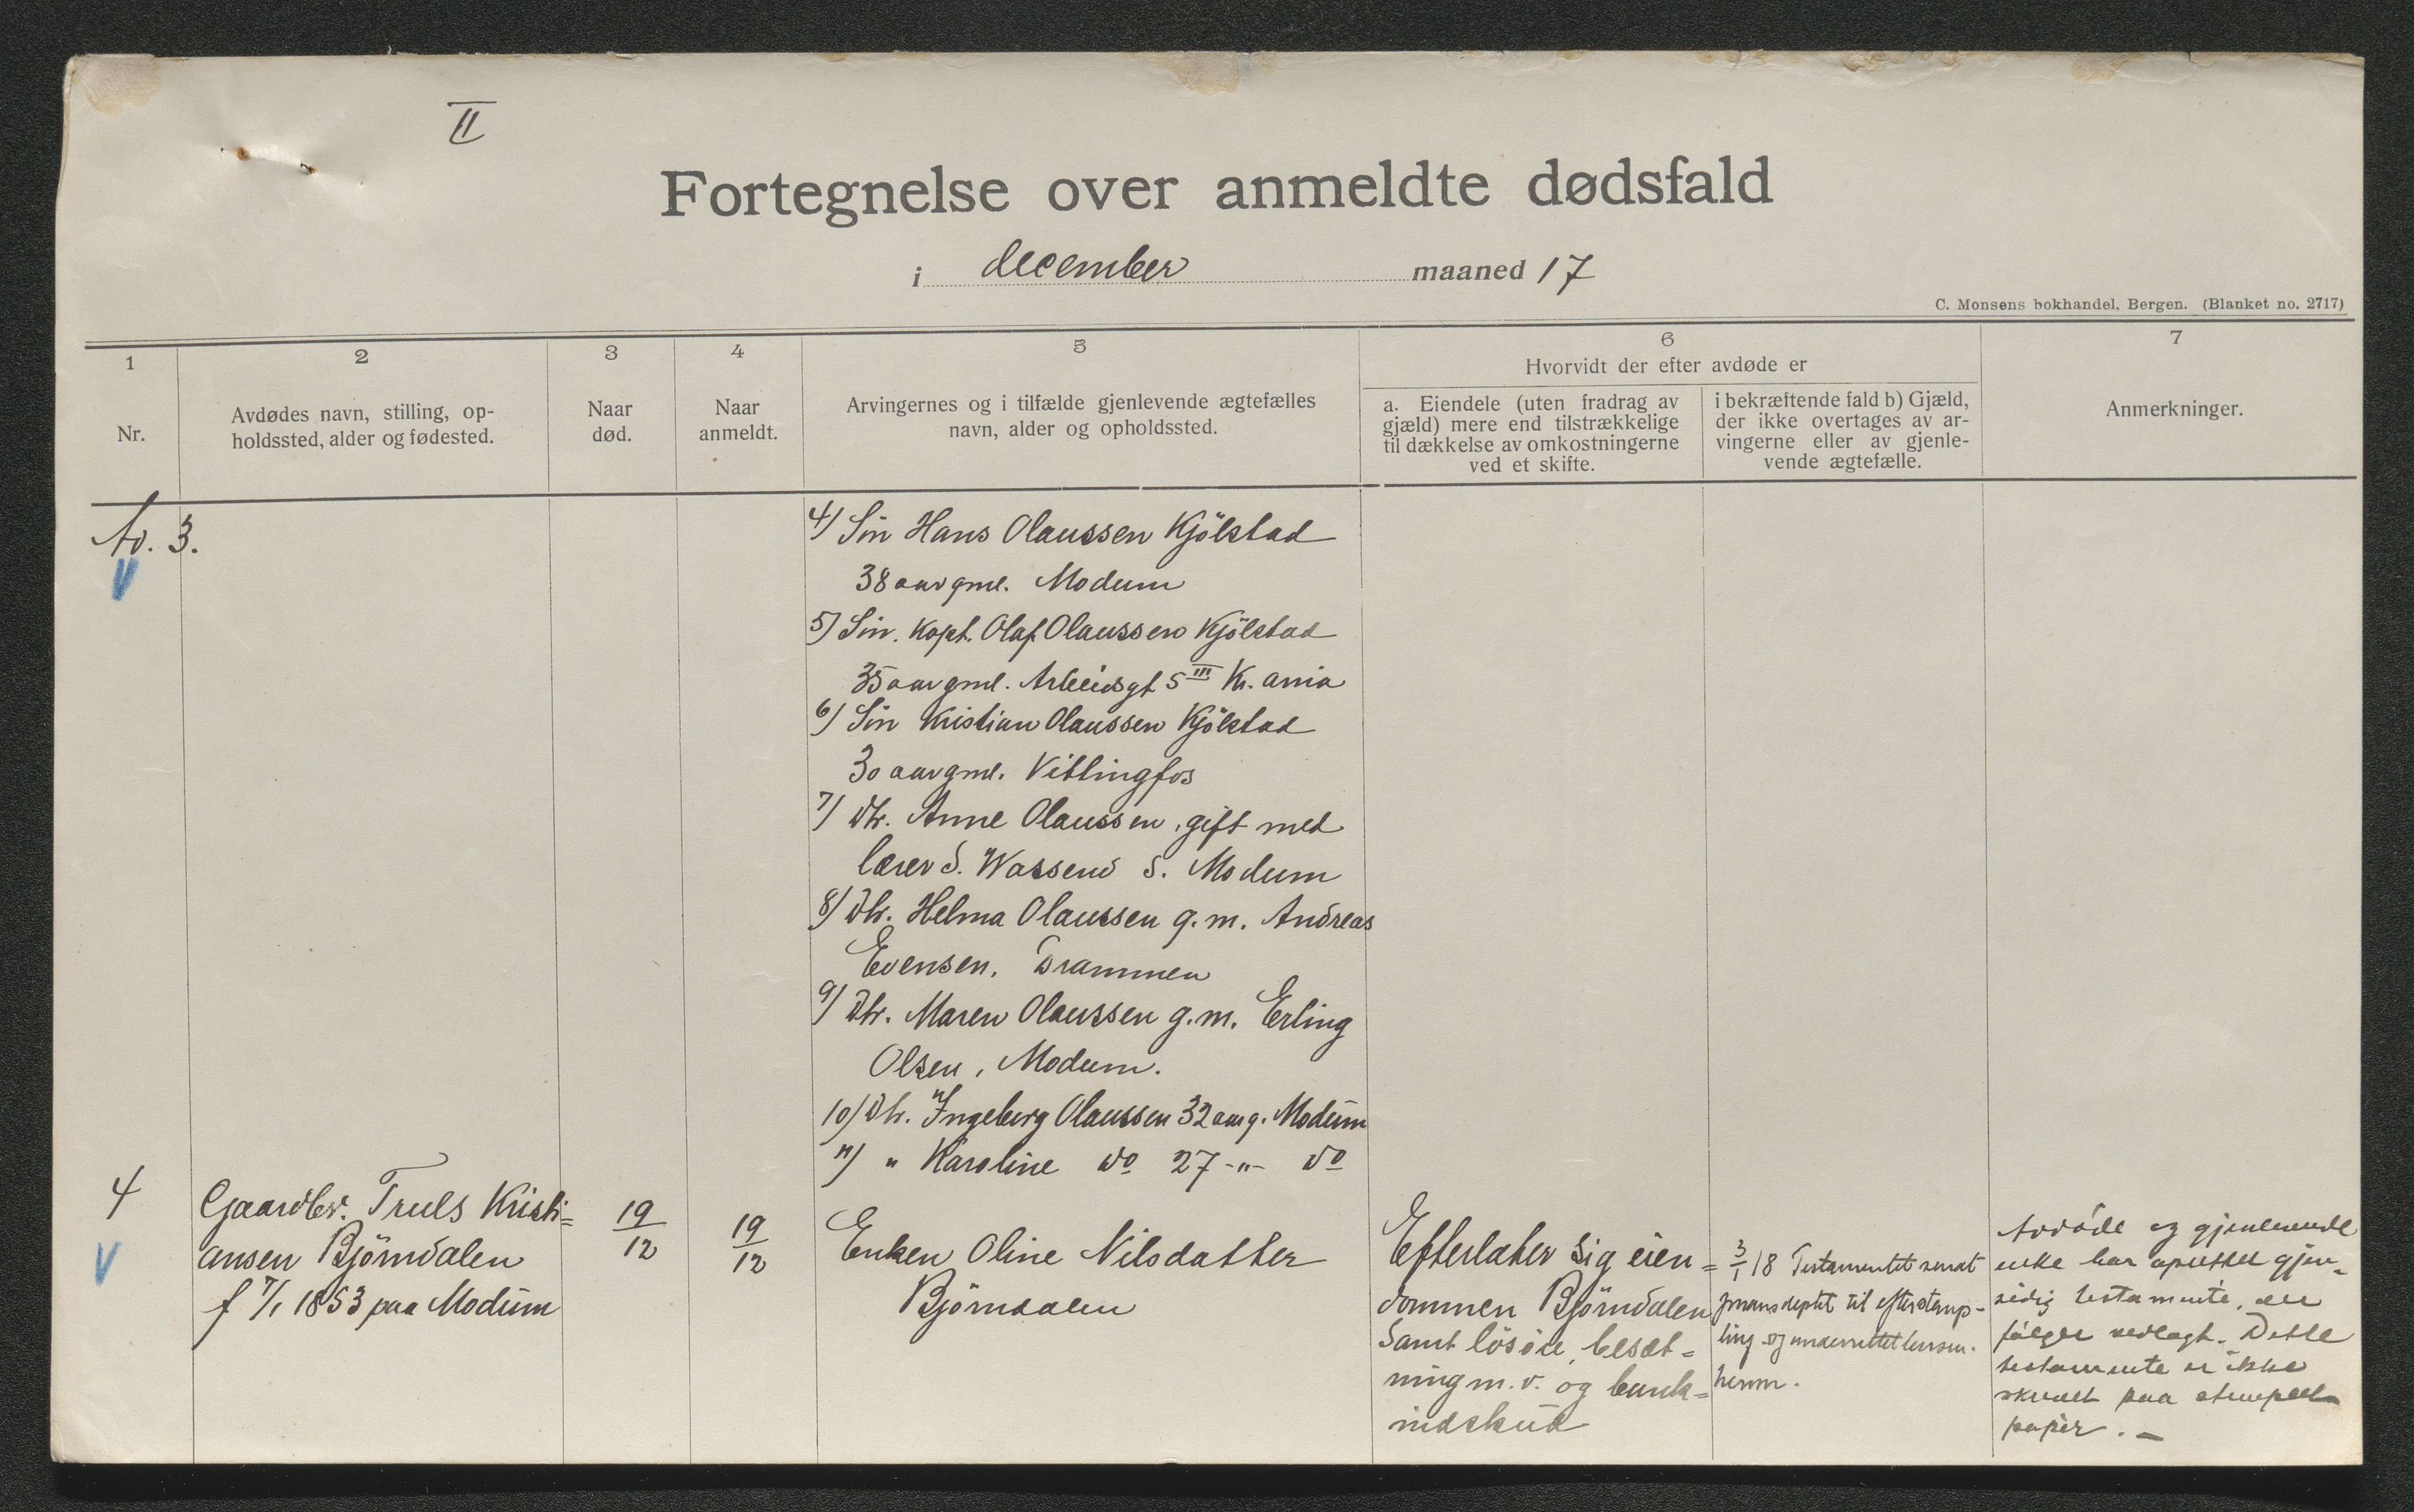 II
Fortegnelse over anmeldte dødsfald
i december maaned 17
C. Monsens bokhandel, Bergen. (Blanket no. 2717)
1
Nr.
2
Avdødes navn, stilling, op-
holdssted, alder og fødested.
3
Naar
død.
4
Naar
anmeldt.
5
Arvingernes og i tilfælde gjenlevende ægtefælles
navn, alder og opholdssted.
6
Hvorvidt der efter avdøde er
a. Eiendele (uten fradrag av
gjæld) mere end tilstrækkelige
til dækkelse av omkostningerne
ved et skifte.
i bekræftende fald b) Gjæld,
der ikke overtages av ar-
vingerne eller av gjenle-
vende ægtefælle.
7
Anmerkninger.
3.
V
4) Sön Hans Olaussen Kjölstad
38 aar gml. Modum
5) Sön. Kapt. Olaf Olaussen Kjölstad
35 aar gml. Arbeidsgt 5 III Kr.ania
6) Sön Kristian Olaussen Kjölstad
30 aar gml. Vittingfos
7) Dtr. Anne Olaussen, gift med
lærer S. Wassend S. Modum
8) Dtr. Helma Olaussen g.m. Andreas
Evensen, Drammen
9) Dtr. Maren Olaussen g.m. Erling
Olsen, Modum.
10) Dtr. Ingeborg Olaussen 32 aar g. Modum
11) " Karoline do 27 -"- do
4
V
Gaardbr. Truls Kristi=
ansen Björndalen
f 7/1 1853 paa Modum
19/12
19/12
Enken Oline Nilsdatter
Björndalen
Efterlater sig eien=
dommen Björndalen
samt lösöre, besæt=
ning m.v. og bank=
indskud
3/1 18 Testamentet sendt
finansdeptet til efterstemp-
ling og underrettet lensm.
herom.
Avdöde og gjenlevende
enke har oprettet gjen-
sidig testamente, der
fölger vedlagt. Dette
testamente er ikke
skrevet paa stemplet
papir. -